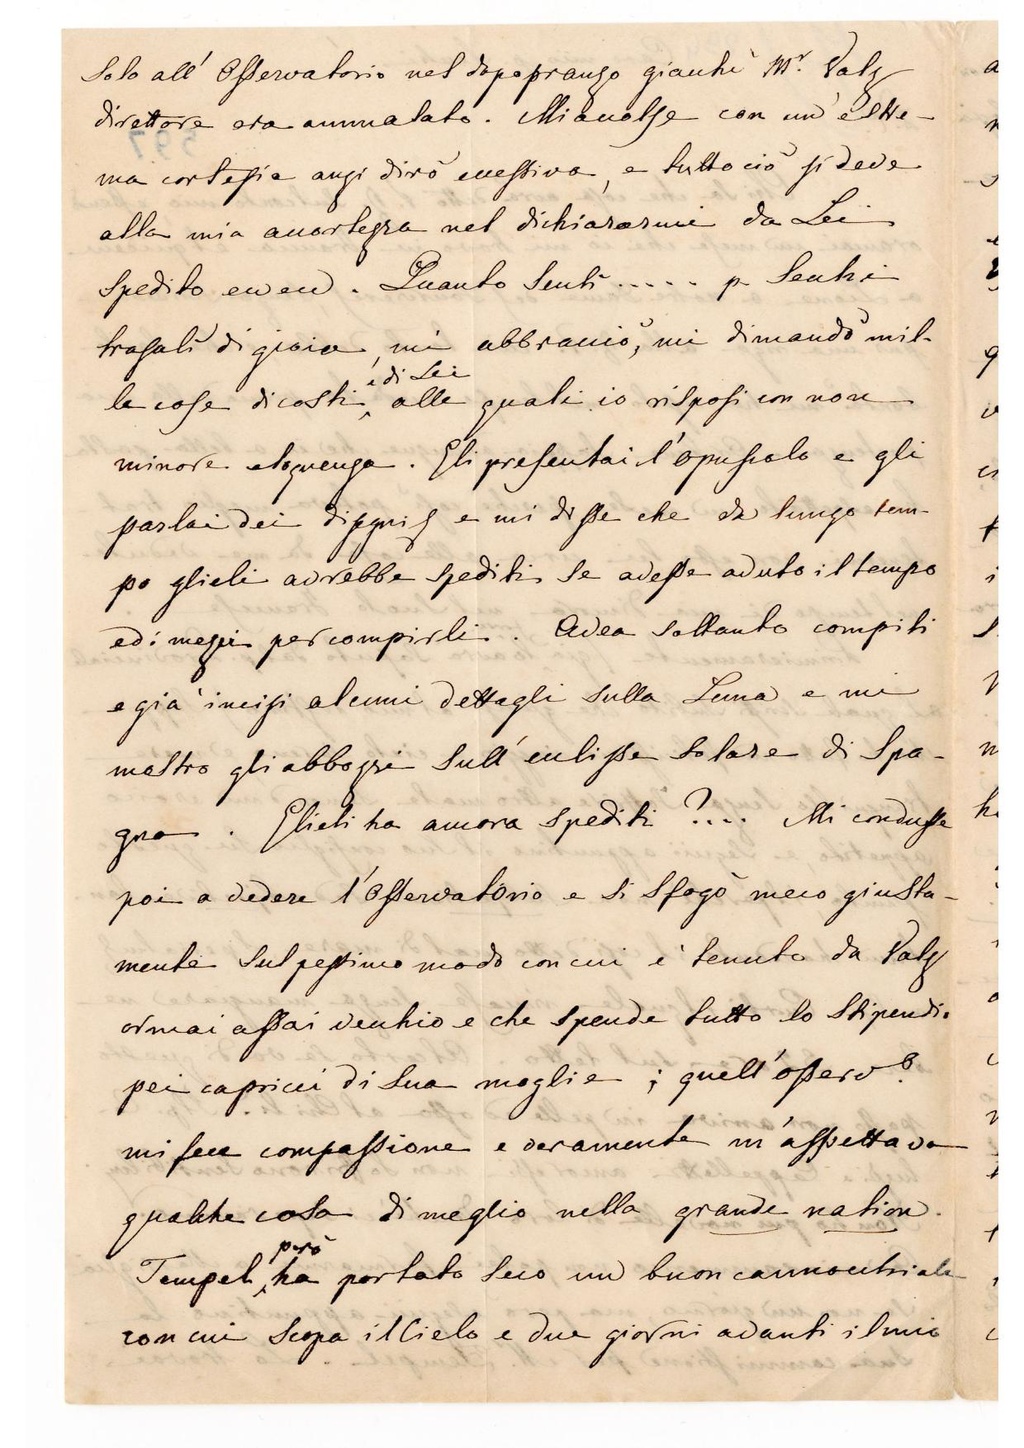 solo all' Osservatorio nel dopopranzo gianchè Mr. Valz
direttore era ammalato. Mi accolse con un' estre-
ma cortesia anzi dirò eccessiva, e tutto ciò si deve
alla mia accortezza nel dichiararmi da Lei
spedito ecc ecc. Quanto sentì ..... p. Secchi
trasalì di gioia, mi abbracciò, mi dimandò mil-
le cose di costì e di Lei alle quali io risposi con non
minore eloquenza. Gli presentai l'opuscolo e gli
parlai dei disegni e mi disse che da lungo tem-
po glieli avrebbe spediti se avesse avuto il tempo
ed i mezzi per compirli. Avea soltanto compiti
e già incisi alcuni dettagli sulla Luna e mi
mostrò gli abbozzi sull' eclisse solare di Spa-
gna. Glieli ha ancora spediti ?... Mi condusse
poi a vedere l'Osservatorio e si sfogò meco giusta-
mente sul pessimo modo con cui è tenuto da Valz
ormai assai vecchio e che spende tutto lo stipendio
pei capricci di sua moglie; quell' osservo.
mi fece compassione e veramente m'aspettava
qualche cosa di meglio nella grande nation.
Tempel, però ha portato seco un buon cannocchiale
con cui scopa il Cielo e due giorni avanti il mio